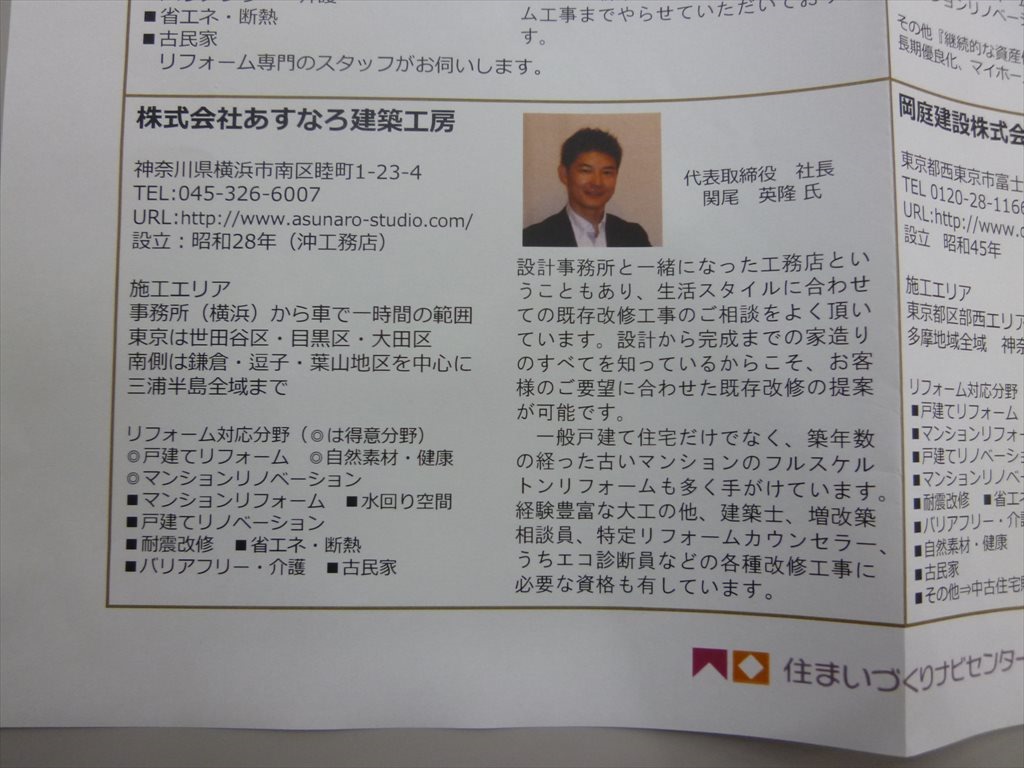 ■省エネ・断熱
■古民家
リフォーム専門のスタッフがお伺いします。
ム工事までやらせていただいており
す。
株式会社あすなろ建築工房
神奈川県横浜市南区睦町1-23-4
TEL:045-326-6007
URL:http://www.asunaro-studio.com/
設立：昭和28年（沖工務店）
施工エリア
事務所（横浜）から車で一時間の範囲
東京は世田谷区・目黒区・大田区
南側は鎌倉・逗子・葉山地区を中心に
三浦半島全域まで
リフォーム対応分野（◎は得意分野）
◎戸建てリフォーム　◎自然素材・健康
◎マンションリノベーション
■マンションリフォーム　■水回り空間
■戸建てリノベーション
■耐震改修　■省エネ・断熱
■バリアフリー・介護　■古民家
代表取締役　社長
関尾　英隆 氏
設計事務所と一緒になった工務店とい
うこともあり、生活スタイルに合わせ
ての既存改修工事のご相談をよく頂い
ています。設計から完成までの家造り
のすべてを知っているからこそ、お客
様のご要望に合わせた既存改修の提案
が可能です。
一般戸建て住宅だけでなく、築年数
の経った古いマンションのフルスケル
トンリフォームも多く手がけています。
経験豊富な大工の他、建築士、増改築
相談員、特定リフォームカウンセラー、
うちエコ診断員などの各種改修工事に
必要な資格も有しています。
その他『継続的な資産
長期優良化、マイホー
岡庭建設株式会
東京都西東京市富士
TEL 0120-28-116
URL:http://www.
設立　昭和45年
施工エリア
東京都区部西エリア
多摩地域全域　神
リフォーム対応分野
■戸建てリフォーム
■マンションリフォー
■戸建てリノベーショ
■マンションリノベー
■耐震改修　■省エ
■バリアフリー・介
■自然素材・健康
■古民家
■その他⇒中古住宅
住まいづくりナビセンター